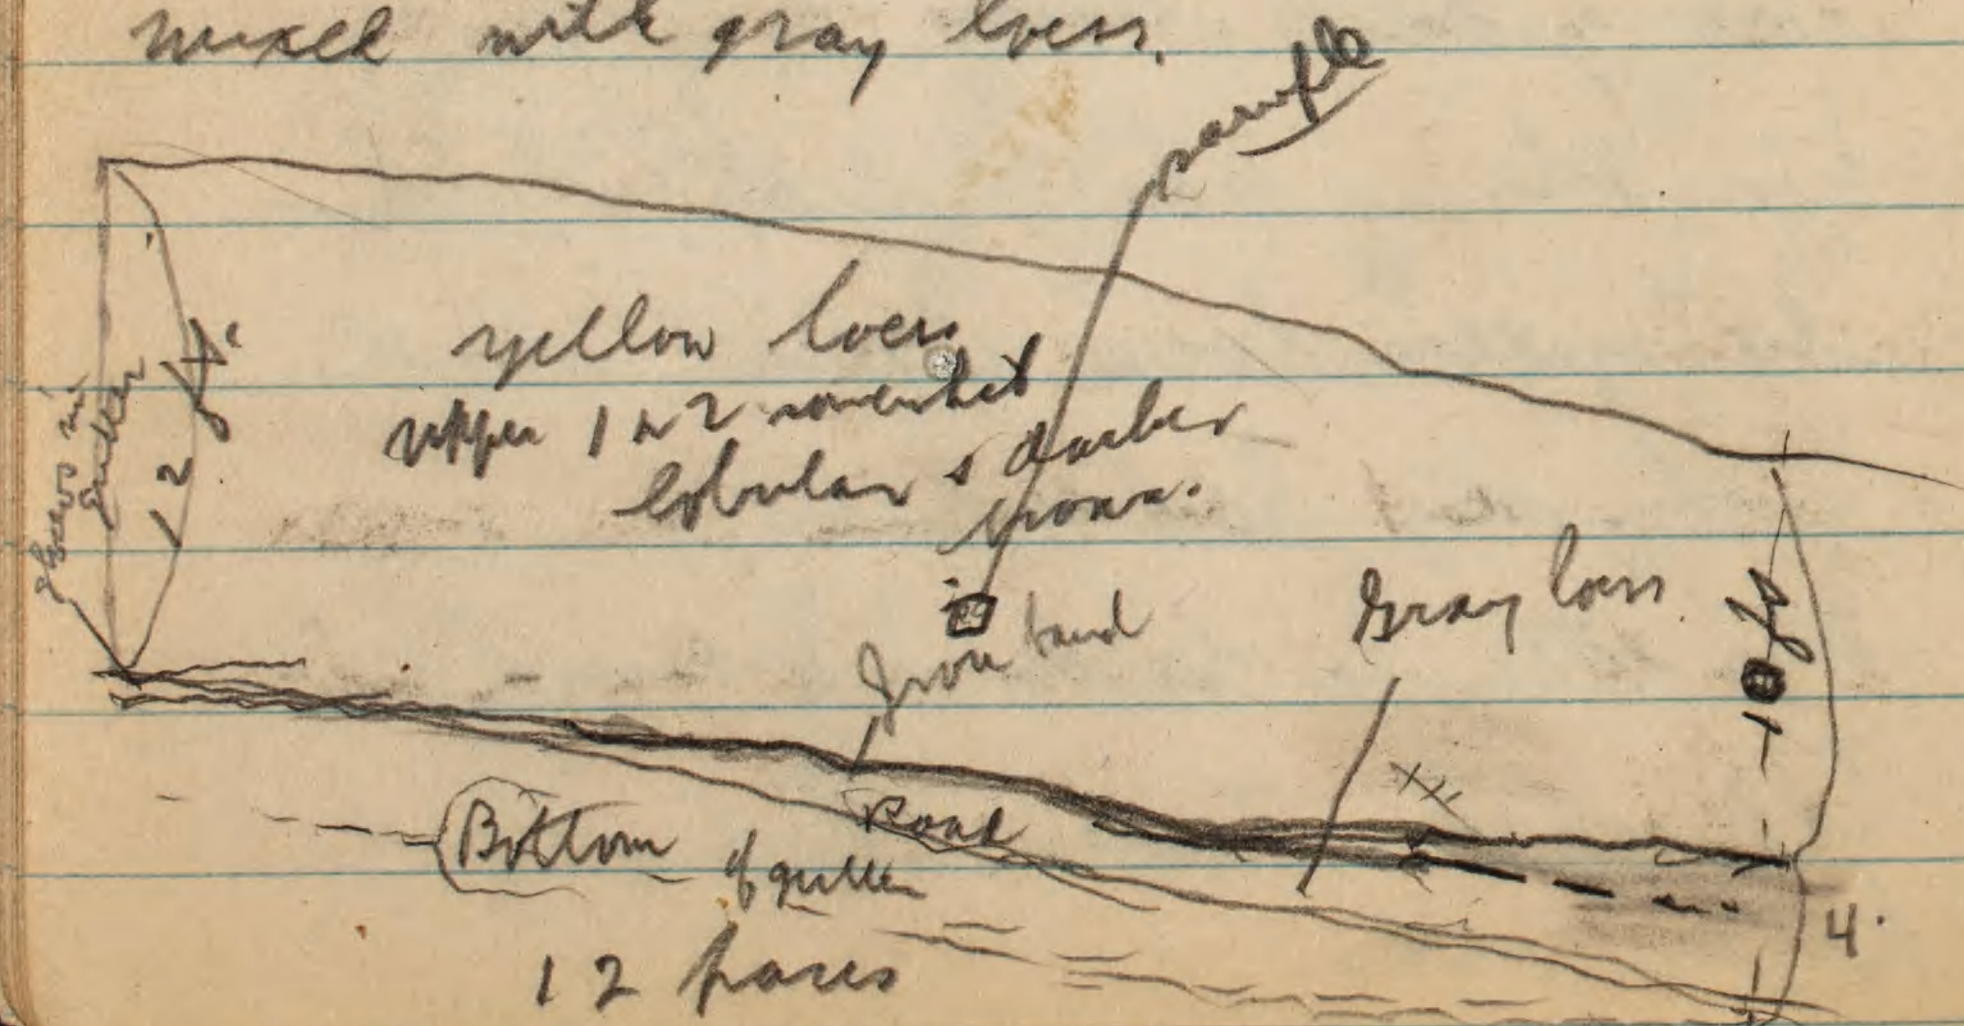 mixed with gray loess.
sample
yellow loess
upper 1 to 2 somewhat
lobular & darker
brown.
12 ft.
in
gutter
Iron band
Gray loess
10 ft
Road
Bottom of gutter
4'
12 paces